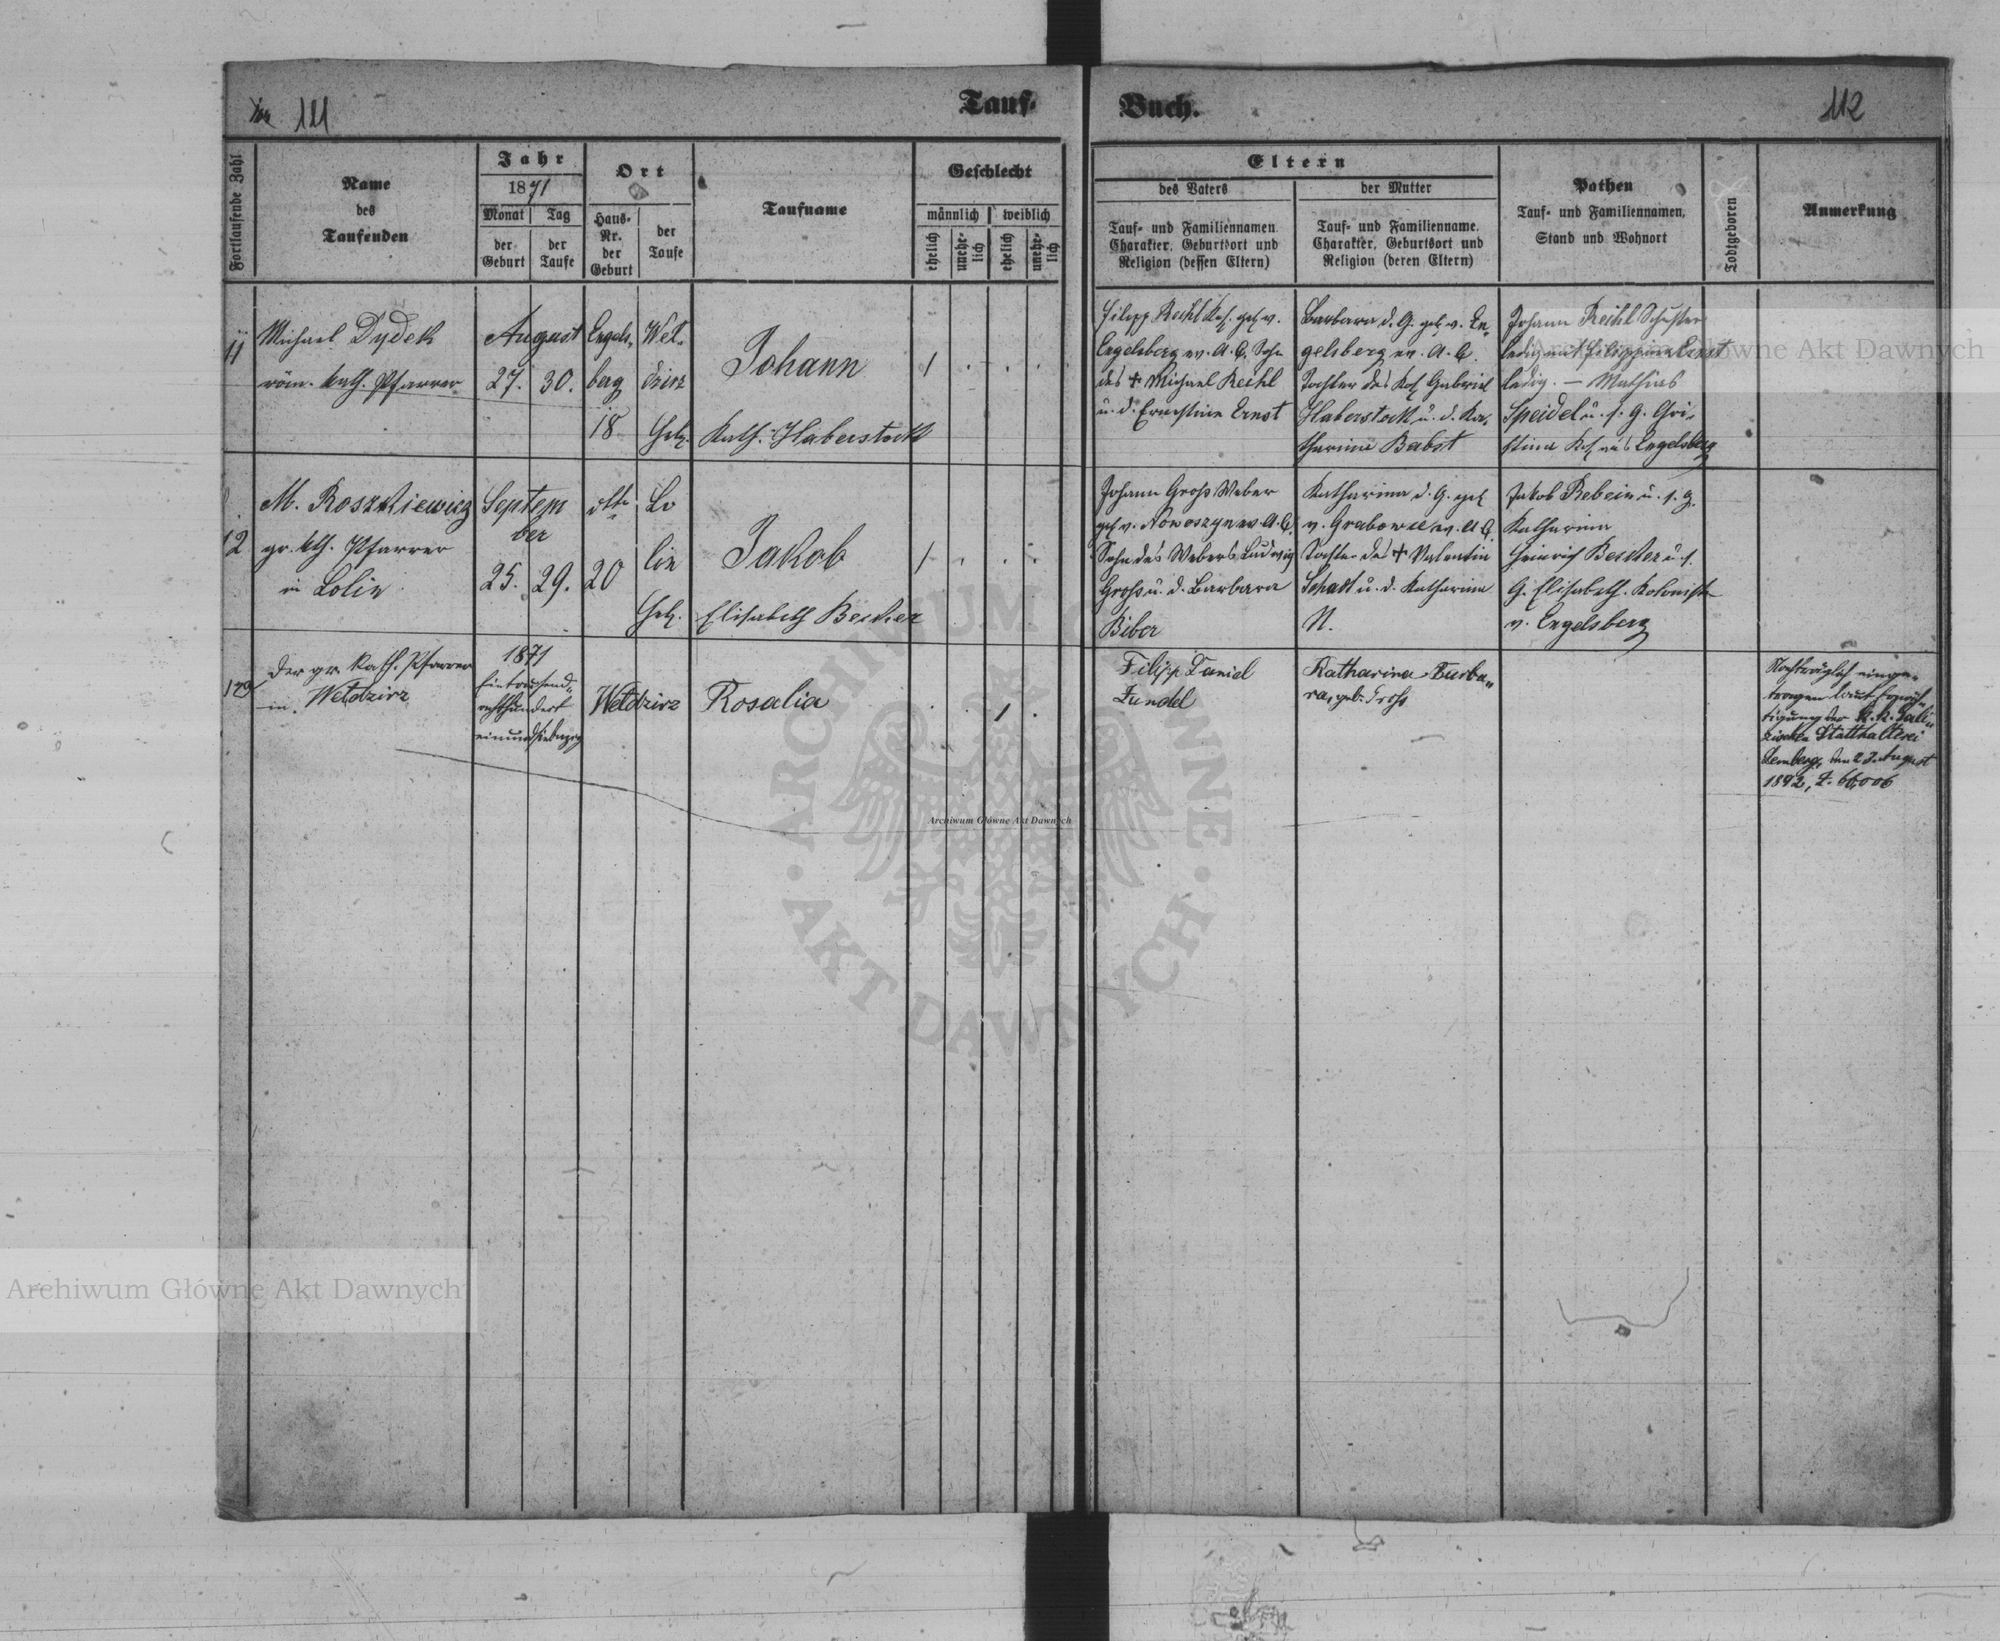 111
Tauf-
Buch.
112
Fortlaufende Zahl
Name
des
Taufenden
Jahr
1871
Monat
Tag
der
Geburt
der
Taufe
Ort
Haus-
Nr.
der
Geburt
der
Taufe
Taufname
Geschlecht
männlich
weiblich
ehelich
unehe-
lich
ehelich
unehe-
lich
Eltern
des Vaters
der Mutter
Tauf- und Familiennamen
Charakter, Geburtsort und
Religion (dessen Eltern)
Tauf- und Familienname.
Charakter, Geburtsort und
Religion (deren Eltern)
Pathen
Tauf- und Familiennamen,
Stand und Wohnort
Todtgeboren
Anmerkung
11
Michael Dydek
röm. kath. Pfarrer
August
27. 30.
Engels-
berg
18
Wel-
dzirz
Heb.
Johann
Kath. Haberstock
1
Filipp Reichl Kol. geb. v.
Engelsberg ev. A. C. Sohn
des + Michael Reichl
u. d. Ernestine Ernst
Barbara d. G. geb. v. En-
gelsberg ev. A. C.
Tochter des Kol. Gabriel
Haberstock u. d. Ka-
tharina Babst
Johann Reichl Schuster
ledig mit Filippine Ernst
ledig. — Mathias
Speidel u. s. G. Chri-
stina Kol. aus Engelsberg
12
M. Roszkiewicz
gr. kth. Pfarrer
in Lolin
Septem
ber
25. 29.
dtto
20
Lo
lin
Heb.
Jakob
Elisabeth Becker
1
Johann Groß Weber
geb. v. Nowoszyn ev. A. C.
Sohn des Webers Ludwig
Groß u. d. Barbara
Biber
Katharina d. G. geb.
v. Grabowce ev. A. C.
Tochter des + Valentin
Schatt u. d. Katharina
N.
Jakob Rebein u. s. G.
Katharina
Heinrich Becker u. s.
G. Elisabeth. Kolonisten
v. Engelsberg
Der gr. kath. Pfarrer
in Weldzirz
1871
Eintausend-
achthundert
einundsiebenzig
Weldzirz
Rosalia
1
Filipp Daniel
Zundel
Katharina Barba-
ra, geb. Groß
Nachträglich einge-
tragen laut Ermäch-
tigung der k. k. Gali-
zischen Statthalterei
Lemberg, den 23. August
1892, Z. 66,006
Archiwum Główne Akt Dawnych
ARCHIWUM GŁÓWNE
AKT DAWNYCH
Archiwum Główne Akt Dawnych
Archiwum Główne Akt Dawnych